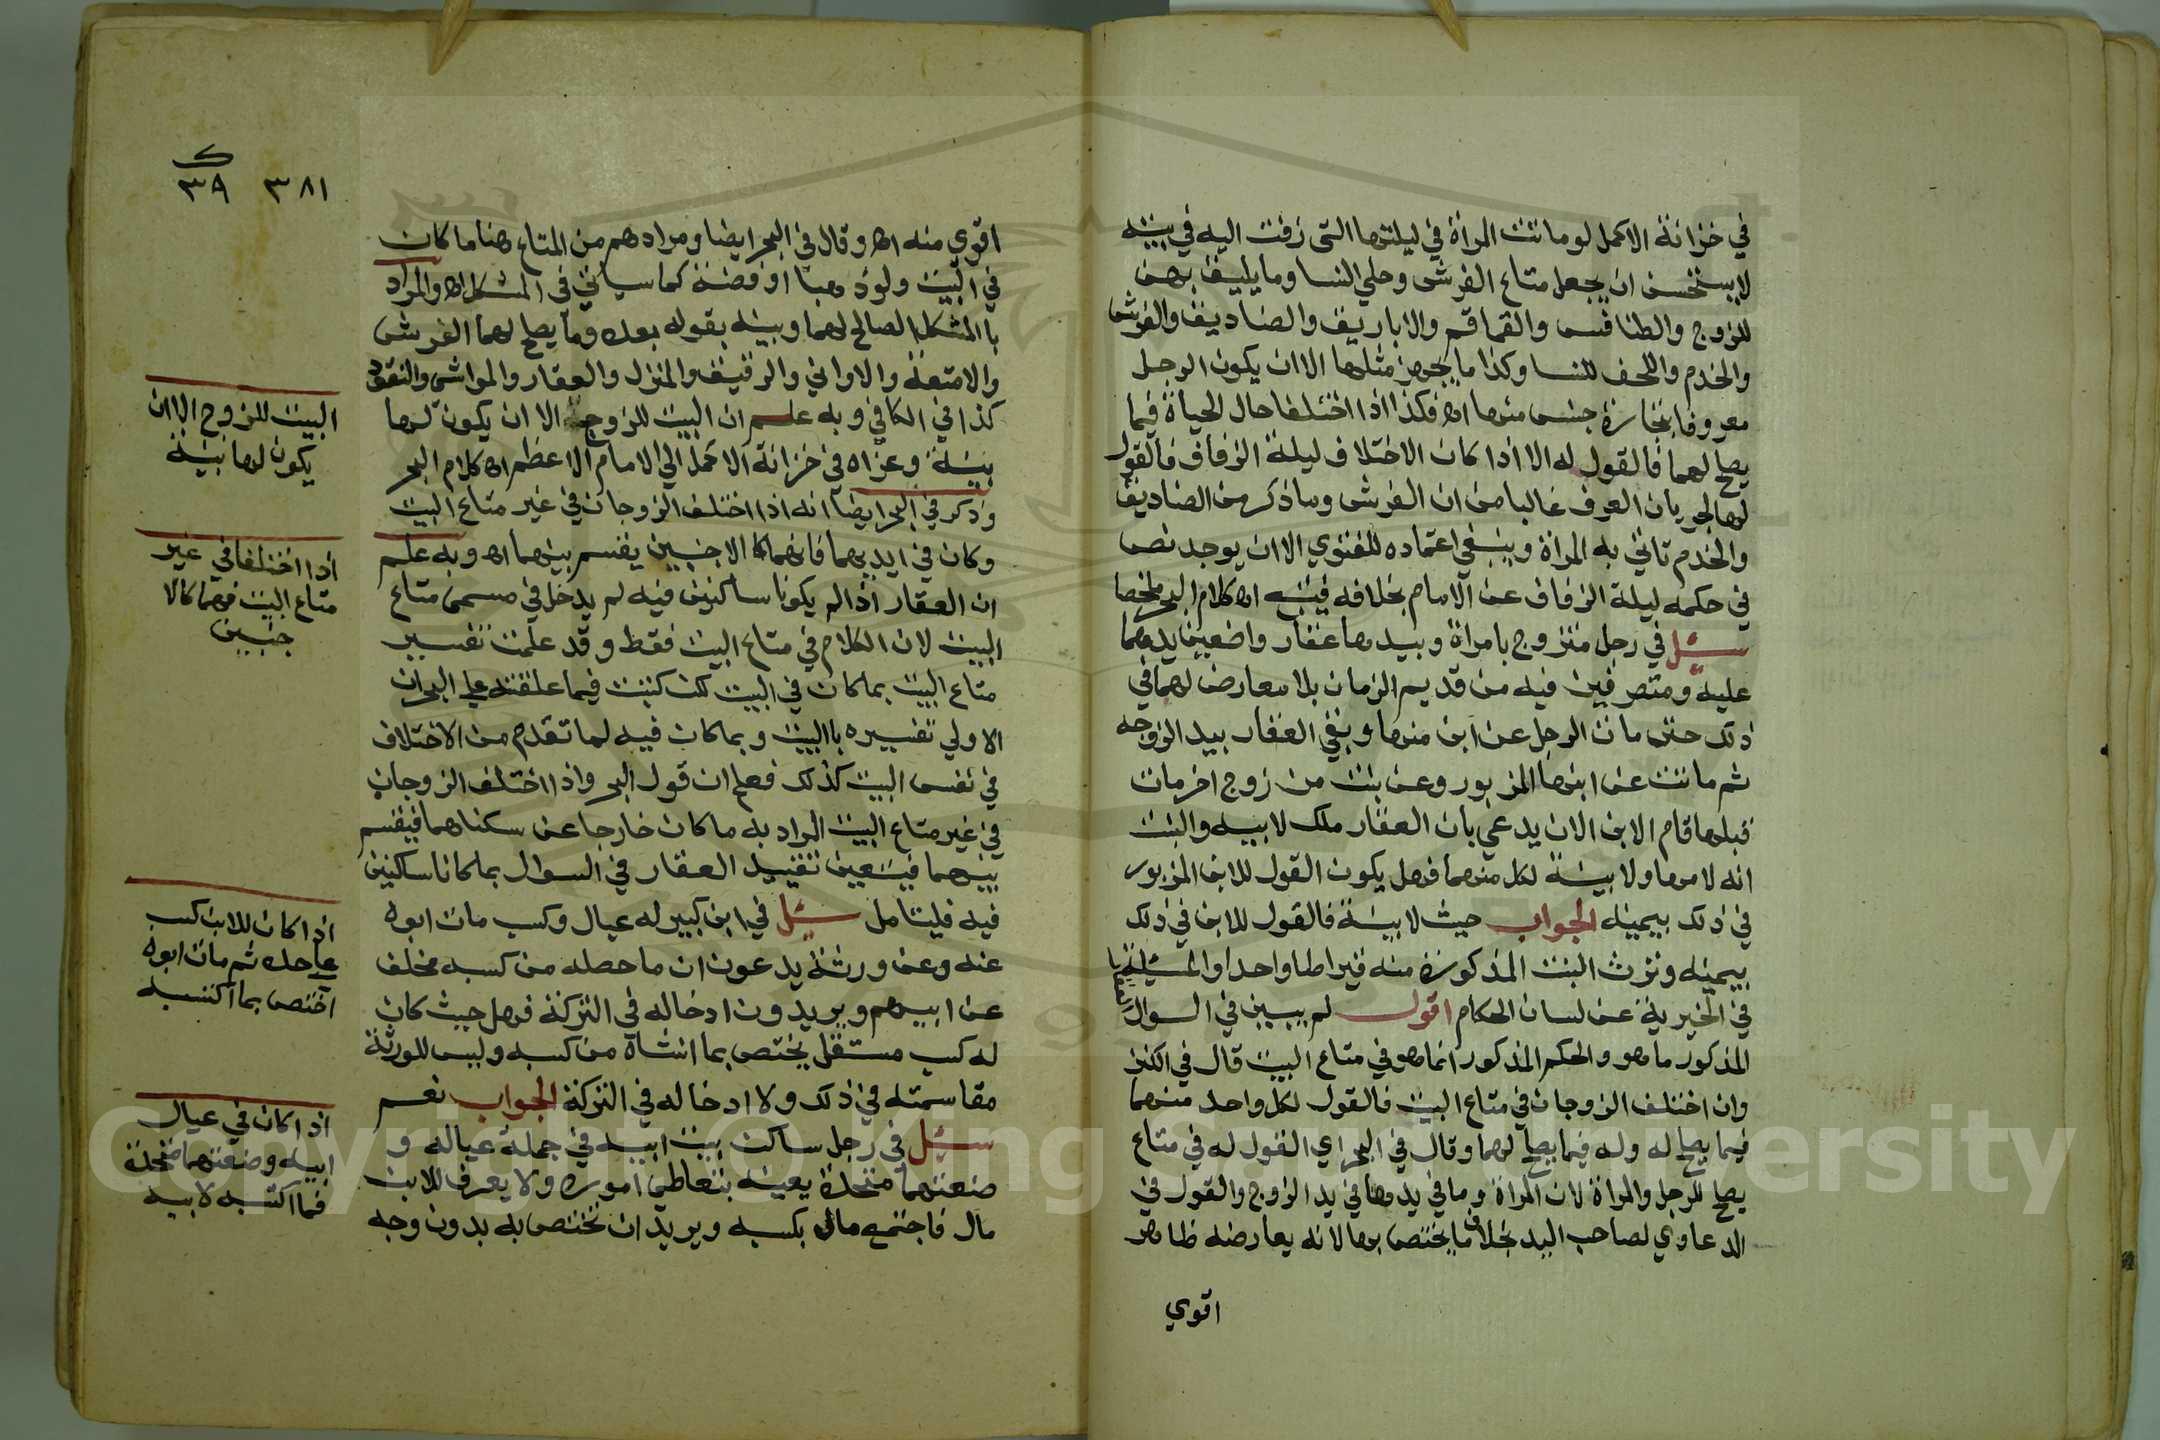 في خزانة الاكمل لو ماتت المراة في ليلتها التي زفت اليه في بيته
لا يستحسن ان يجعل متاع الفرش وحلي النسا وما يليق بهن
للزوج والطنافس والقماقم والاباريق والصناديق والفرش
والخدم واللحف للنسا وكذا ما يجهز مثلها الا ان يكون الرجل
معروفا بتجارة جنس منها اه فكذا اذا اختلفا حال الحياة فيما
يصلح لهما فالقول له الا اذا كان الاختلاف ليلة الزفاف فالقول
لها لجريان العرف غالبا من ان الفرش وما ذكر من الصناديق
والخدم تاتي به المراة وينبغي اعتماده للفتوي الا ان يوجد نص
في حكمه ليلة الزفاف عن الامام بخلافه فيتبع اه كلام البحر ملخصا
سئل في رجل متزوج بامراة وبيدهما عقار واضعين يدهما
عليه ومتصرفين فيه من قديم الزمان بلا معارض لهما في
ذلك حتى مات الرجل عن ابن منها وبقي العقار بيد الزوجه
ثم ماتت عن ابنها المزبور وعن بنت من زوج اخر مات
قبلها قام الابن الان يدعي بان العقار ملك لابيه والبنت
انه لامها ولا بينة لكل منهما فهل يكون القول للابن المزبور
في ذلك بيمينه الجواب حيث لا بينة فالقول للابن في ذلك
بيمينه وترث البنت المذكورة منه قيراطا واحدا والمسئلة
في الخيرية عن لسان الحكام اقول لم يبين في السوال
المذكور ما هو والحكم المذكور انما هو في متاع البيت قال في الكنز
وان اختلف الزوجان في متاع البيت فالقول لكل واحد منهما
فيما يصلح له وله فيما يصلح لهما وقال في البحر اي القول له في متاع
يصلح للرجل والمراة لان المراة وما في يدها في يد الزوج والقول في
الدعاوي لصاحب اليد بخلاف ما يختص بها لانه يعارضه ظاهر
اقوي
٣٨١
٣٩
اقوي منه اه وقال في البحر ايضا ومرادهم من المتاع هنا ما كان
في البيت ولو ذهبا او فضة كما سياتي في المشكل اه والمراد
باالمشكل الصالح لهما وبينه بقوله بعده وما يصلح لهما الفرش
والامتعة والاواني والرقيق والمنزل والعقار والمواشي والنقود
كذا في الكافي وبه علم ان البيت للزوج الا ان يكون لها
بينة وعزاه في خزانة الاكمل الي الامام الاعظم اه كلام البحر
وذكر في البحر ايضا انه اذا اختلف الزوجان في غير متاع البيت
وكان في ايديهما فانهما كالاجنبيين يقسم بينهما اه وبه علم
ان العقار اذا لم يكونا ساكنين فيه لم يدخل في مسمى متاع
البيت لان الكلام في متاع البيت فقط وقد علمت تفسير
متاع البيت بما كان في البيت لكن كتبت فيما علقته علي البحر ان
الاولي تفسيره باالبيت وبما كان فيه لما تقدم من الاختلاف
في نفس البيت كذلك فعلم ان قول البحر واذا اختلف الزوجان
في غير متاع البيت المراد به ما كان خارجا عن سكناهما فيقسم
بينهما فيتعين تقييد العقار في السوال بما كانا ساكنين
فيه فليتامل سئل في ابن كبير له عيال وكسب مات ابوه
عنه وعن ورثة يدعون ان ما حصله من كسبه مخلف
عن ابيهم ويريدون ادخاله في التركة فهل حيث كان
له كسب مستقل يختص بما انشاه من كسبه وليس للورثة
مقاسمته في ذلك ولا ادخاله في التركة الجواب نعم
سئل في رجل ساكن بيت ابيه في جملة عياله و
صنعتهما متحدة يعينه بتعاطي اموره ولا يعرف للابن
مال فاجتمع مال بكسبه ويريد ان يختص به بدون وجه
البيت للزوج الا ان
يكون لها بينة
اذا اختلفا في غير
متاع البيت فهما كالا
جنبيين
اذا كان للابن كسب
علي حده ثم مات ابوه
اختص بما اكتسبه
اذا كان في عيال
ابيه وصنعتهما متحدة
فما اكتسبه لابيه
Copyright © King Saud University